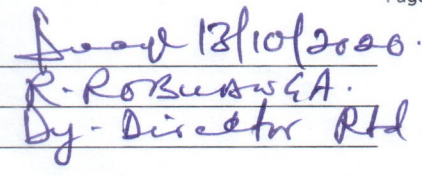 13/10/2020.
R. ROBUAWGA.
Dy. Director Rtd